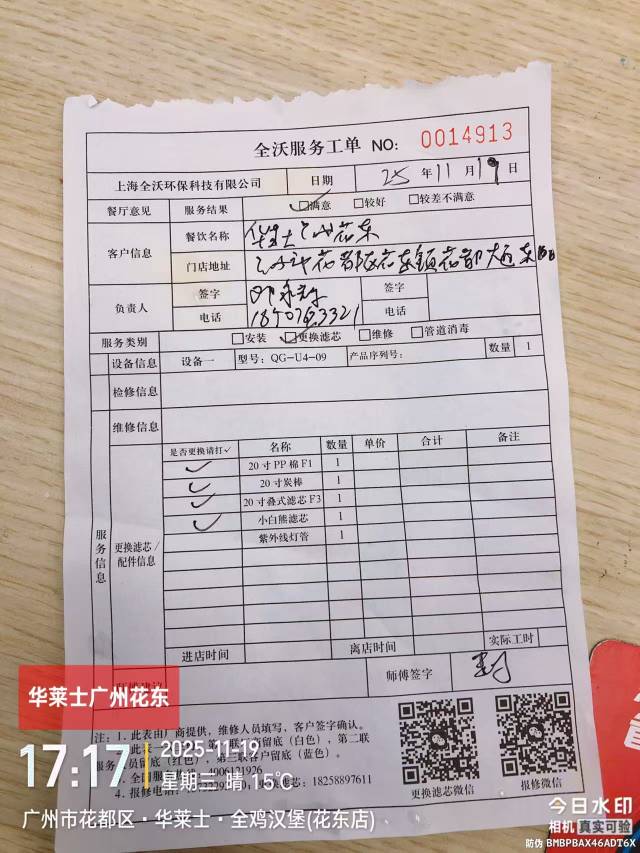 全沃服务工单 NO: 0014913
上海全沃环保科技有限公司 日期 25 年 11 月 19 日
餐厅意见 服务结果 ☑满意 □较好 □较差不满意
客户信息 餐饮名称 华莱士广州花东
门店地址 广州市花都区花东镇花都大道东
负责人 签字 签字
电话 电话
服务类别 □安装 ☑更换滤芯 □维修 □管道消毒
设备信息 设备一 型号: QG-U4-09 产品序列号: 数量 1
检修信息
维修信息
服务信息 更换滤芯/配件信息
是否更换请打✓ 名称 数量 单价 合计 备注
✓ 20寸PP棉F1 1
✓ 20寸炭棒 1
✓ 20寸叠式滤芯F3 1
✓ 小白熊滤芯 1
紫外线灯管 1
进店时间 离店时间 实际工时
师傅签字
注: 1. 此表由厂商提供, 维修人员填写, 客户签字确认。
底(白色), 第二联
服务 员留底(红色), 第三联客户留底(蓝色)。
4006121926
4. 报修电 滤芯: 18258897611
更换滤芯微信 报修微信
华莱士广州花东
17:17 2025-11-19
星期三 晴 15℃
广州市花都区·华莱士·全鸡汉堡(花东店)
今日水印
相机 真实可验
防伪 BMBPBAX46ADT6X